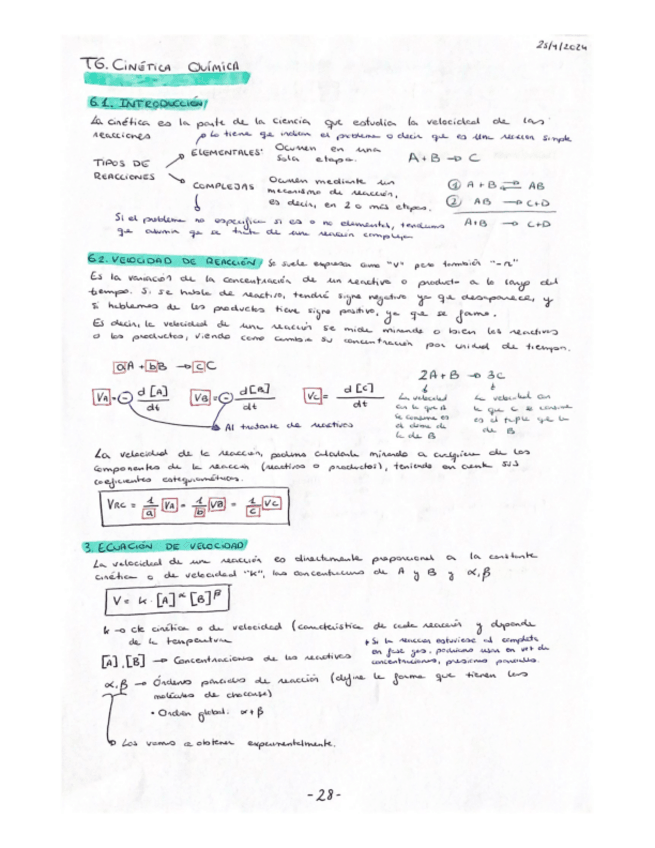 25/1/2024
T6. CINÉTICA QUÍMICA
6.1. INTRODUCCIÓN
La cinética es la parte de la ciencia que estudia la velocidad de las
reacciones
lo tiene que indicar el problema o decir que es una reacción simple
TIPOS DE REACCIONES
ELEMENTALES: Ocurren en una sola etapa. A + B → C
COMPLEJAS Ocurren mediante un mecanismo de reacción, es decir, en 2 o más etapas.
① A + B ⇌ AB
② AB → C+D
A+B → C+D
Si el problema no especifica si es o no elemental, tendremos
que asumir que se trata de una reacción compleja
6.2. VELOCIDAD DE REACCIÓN Se suele expresar como "v" pero también "-r"
Es la variación de la concentración de un reactivo o producto a lo largo del
tiempo. Si se habla de reactivo, tendrá signo negativo ya que desaparece, y
si hablamos de los productos tiene signo positivo, ya que se forma.
Es decir, la velocidad de una reacción se mide mirando o bien los reactivos
o los productos, viendo como cambia su concentración por unidad de tiempo.
aA + bB → cC
2A + B → 3C
VA = - d[A]/dt VB = - d[B]/dt VC = d[C]/dt
Al tratarse de reactivos
La velocidad con la que A se consume es el doble de la de B
La velocidad con la que C se es el triple que la de B
La velocidad de la reacción, podemos calcularla mirando a cualquiera de los
componentes de la reacción (reactivos o productos), teniendo en cuenta sus
coeficientes estequiométricos.
VRC = 1/a VA = 1/b VB = 1/c VC
3. ECUACIÓN DE VELOCIDAD
La velocidad de una reacción es directamente proporcional a la constante
cinética o de velocidad "k", las concentraciones de A y B y α, β
V = k · [A]^α [B]^β
k → cte cinética o de velocidad (característica de cada reacción y depende
de la temperatura
* Si la reacción estuviese al completo
en fase gas, podríamos usar en vez de
concentraciones, presiones parciales.
[A], [B] → Concentraciones de los reactivos
α, β → Órdenes parciales de reacción (define la forma que tienen las
moléculas de chocarse)
• Orden global: α+β
Los vamos a obtener experimentalmente.
-28-